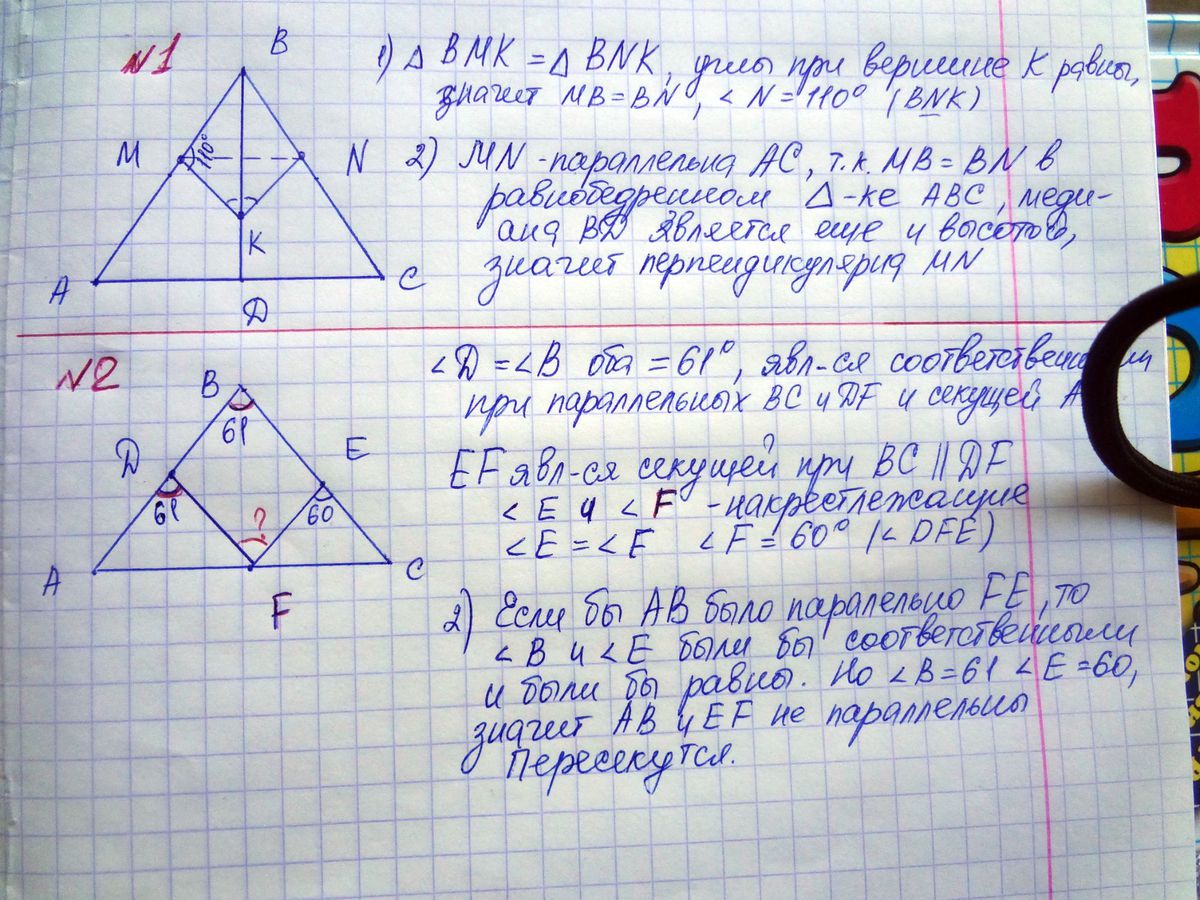 №1
B
M
110°
N
K
A
C
D
1) Δ BMK = Δ BNK, углы при вершине K равны,
значит MB = BN, < N = 110° (BNK)
2) MN - параллельна AC, т.к. MB = BN в
равнобедренном Δ-ке ABC, меди-
ана BD является еще и высотой,
значит перпендикулярна MN
№2
B
61
D
E
61
?
60
A
C
F
<D = <B оба = 61°, явл-ся соответственн
при параллельных BC и DF и секущей A
EF явл-ся секущей при BC || DF
< E и < F - накрестлежащие
< E = < F < F = 60° (< DFE)
2) Если бы AB было паралельно FE, то
< B и < E были бы соответственными
и были бы равны. Но < B = 61 < E = 60,
значит AB и EF не параллельны
Пересекутся.